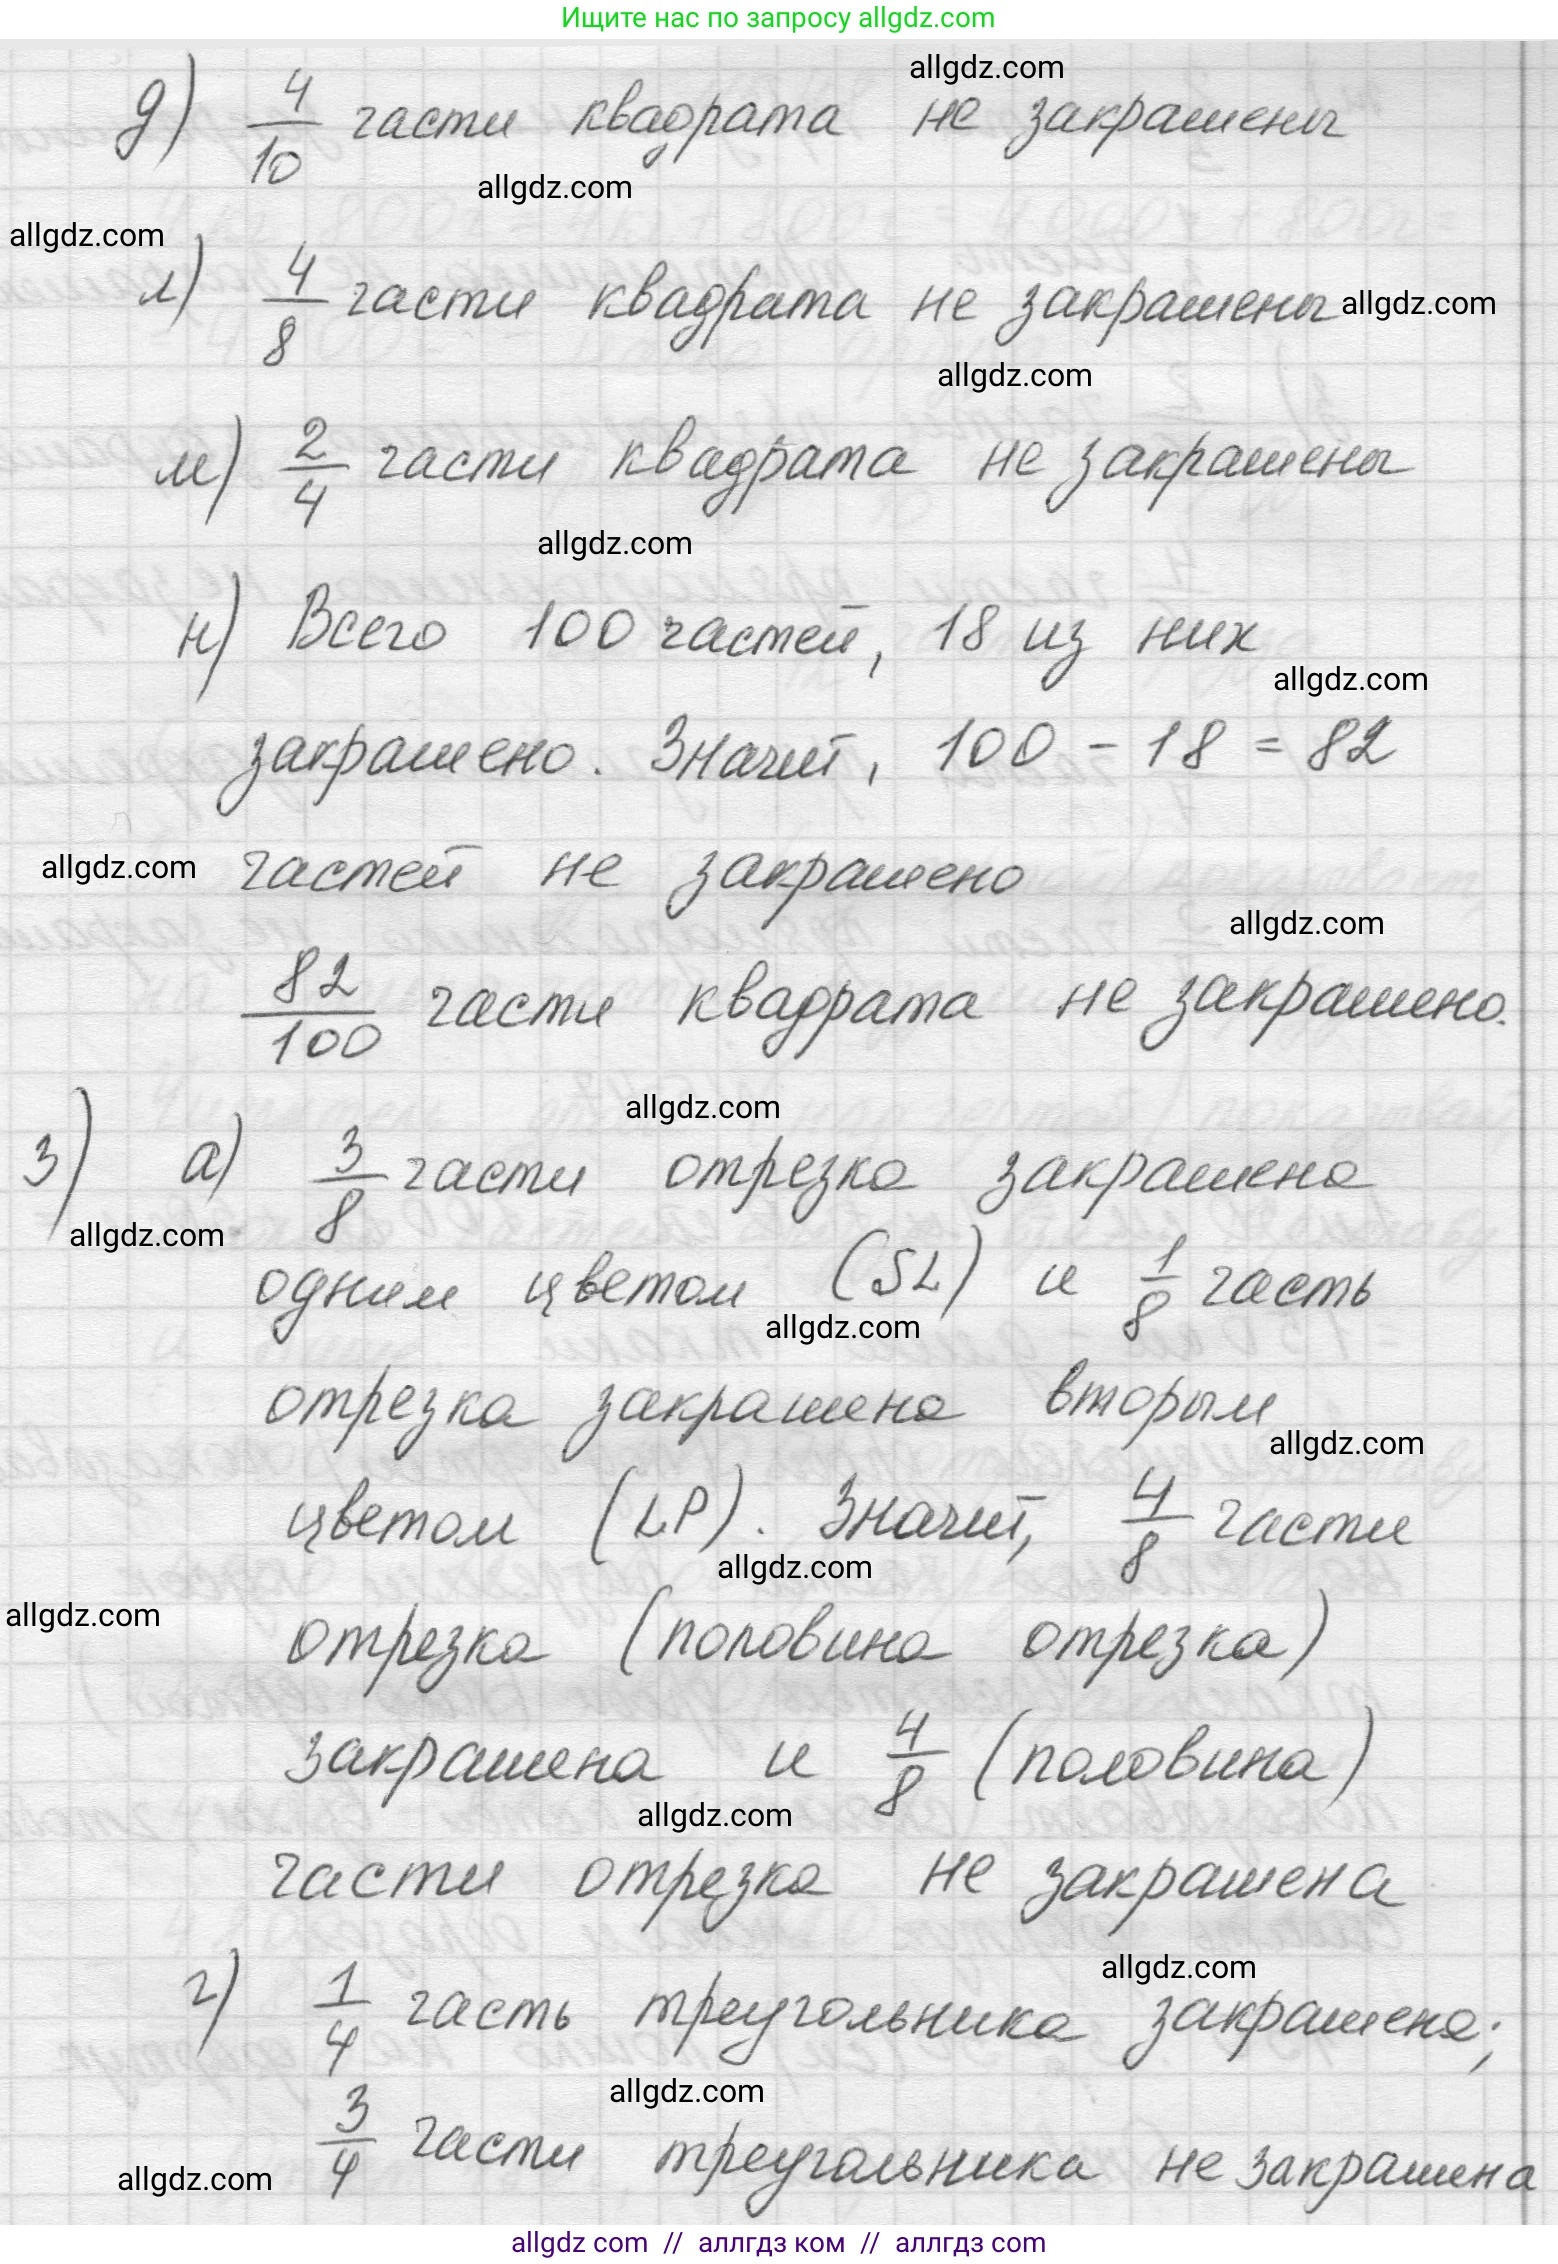 Ищите нас по запросу allgdz.com
allgdz.com
д) 4/10 части квадрата не закрашены
allgdz.com
allgdz.com
л) 4/8 части квадрата не закрашены allgdz.com
allgdz.com
м) 2/4 части квадрата не закрашены
allgdz.com
н) Всего 100 частей, 18 из них
allgdz.com
закрашено. Значит, 100 - 18 = 82
allgdz.com частей не закрашено
allgdz.com
82/100 части квадрата не закрашено.
allgdz.com
3) а) 3/8 части отрезка закрашена
allgdz.com
одним цветом (SL) и 1/8 часть
allgdz.com
отрезка закрашена вторым
allgdz.com
цветом (LP). Значит, 4/8 части
allgdz.com
allgdz.com
отрезка (половина отрезка)
закрашена и 4/8 (половина)
allgdz.com
части отрезка не закрашена
allgdz.com
г) 1/4 часть треугольника закрашена;
allgdz.com
3/4 части треугольника не закрашена
allgdz.com
allgdz com // аллгдз ком // аллгдз com